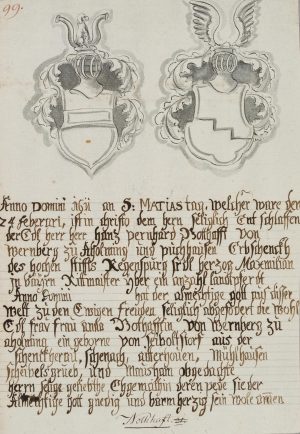 99.
Anno Domini 1611 an S: MATIAS tag, welcher ware der
24 feberari, ist in christo dem hern seliglich Ent schlaffen
der Edl herr herr hanz pernhardt Notthafft von
wernberg zu Aholming und puchhausen Erbschenckh
des hochen stiffts Regenspurg frtl herzog Maximilian
in bayrn Rittmaister yber ein anzahl landtpferdt
Anno Domini hat der almechtige gott aus diser
welt zu den Ewigen freuden seliglich abgefodert die wohl
Edl frav frav anna Nothafftin von wernberg zu
aholming ein geborne von seiboltstorf aus der
schenckhenau, schenach, affterhausen, Mühlhausen
scheibelsgrueb, und Moosham obgedachte
herrn selige geliebthe Ehgemachin deren pede sie der
Allmechtige gott guedig und barmherzig sein wole amen
Notthafft